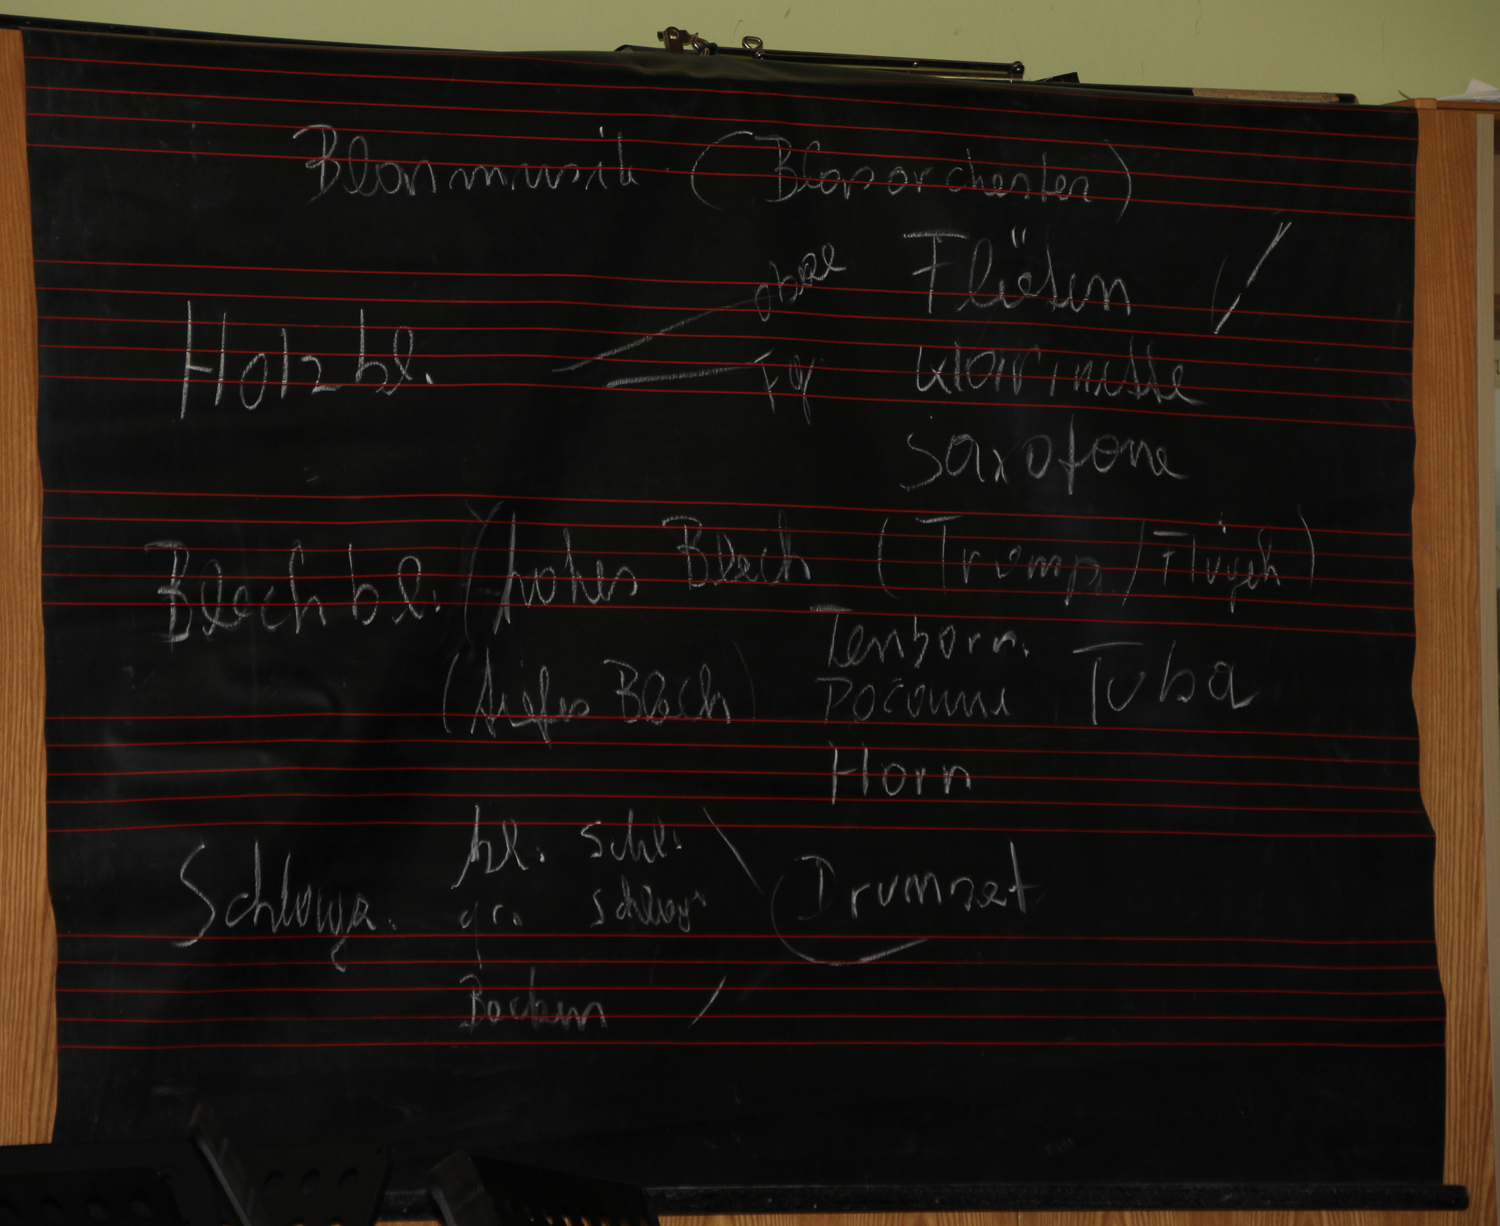 Blasmusik (Blasorchester)
Oboe Flöten
Holzbl. Fg. Klarinette
Saxofone
Blechbl. (hohes Blech (Tromp. / Flügelh)
Tenhorn.
(tiefes Blech) Posaune Tuba
Horn
kl. Schl.
Schlagz. gr. Schlag Drumset
Becken